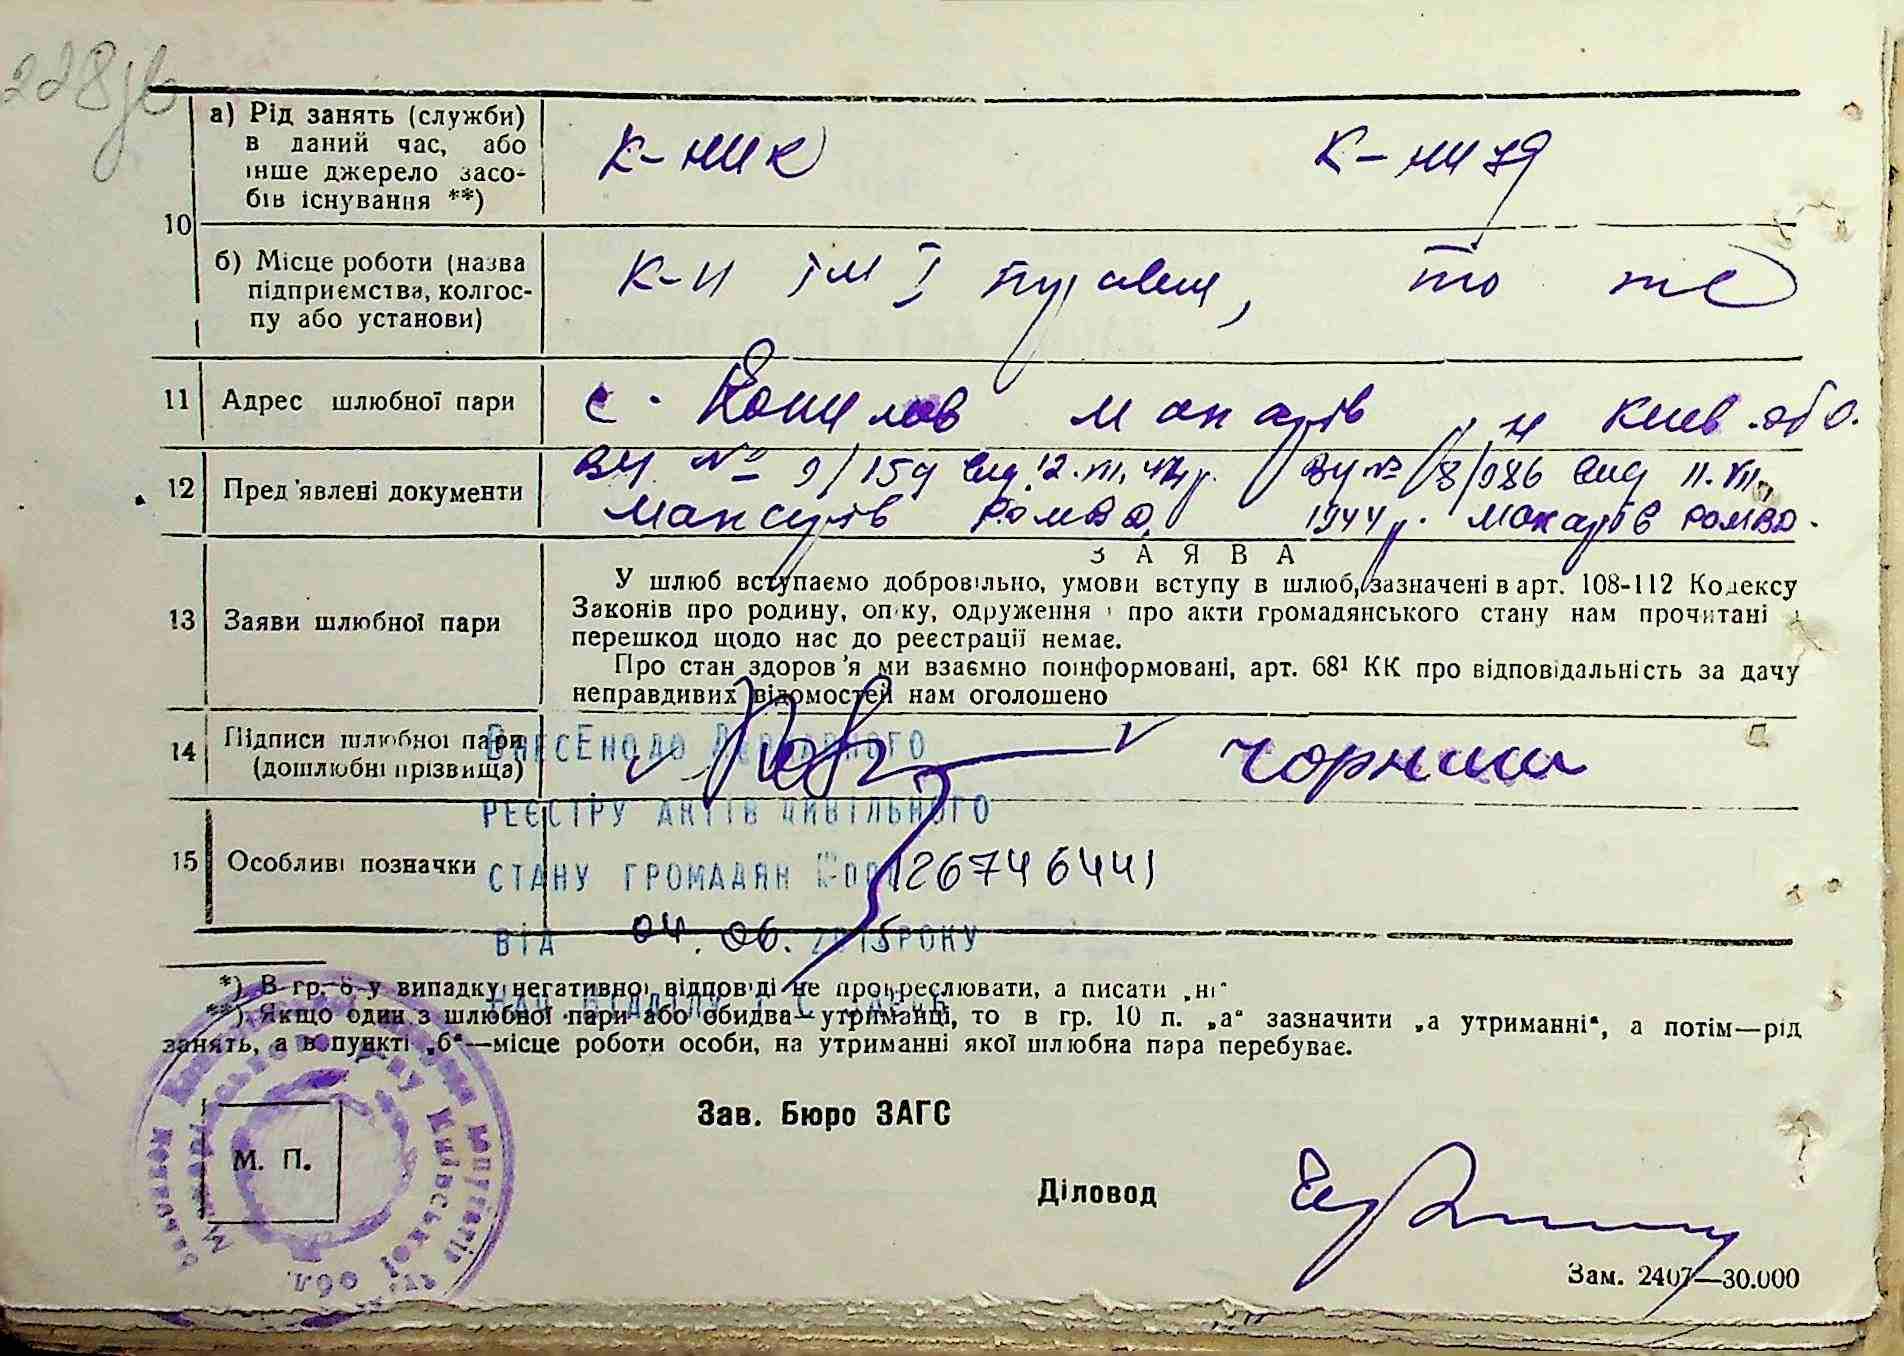 228
а) Рід занять (служби)
в даний час, або
інше джерело засо-
бів існування **)
К-ник К-ниця
10
б) Місце роботи (назва
підприємства, колгос-
пу або установи)
К-п ім І то же
11 Адрес шлюбної пари
с. Копилов Макарів Киев. обл.
12 Пред'явлені документи
ВУ № 9/159 вид. 12.VII. 44р. ВУ № 8/986 вид 11.VII.
Макарів РОМВД 1944р. Макарів РОМВД.
ЗАЯВА
13 Заяви шлюбної пари
У шлюб вступаємо добровільно, умови вступу в шлюб, зазначені в арт. 108-112 Кодексу
Законів про родину, опіку, одруження і про акти громадянського стану нам прочитані і
перешкод щодо нас до реєстрації немає.
Про стан здоров'я ми взаємно поінформовані, арт. 68¹ КК про відповідальність за дачу
неправдивих відомостей нам оголошено
14 Підписи шлюбної пари
(дошлюбні прізвища)
ВНЕСЕНО ДО ДЕРЖАВНОГО
РЕЄСТРУ АКТІВ ЦИВІЛЬНОГО
15 Особливі позначки
СТАНУ ГРОМАДЯН
ВІД 04. 06. 2015 РОКУ
*) В гр. 8-у випадку негативної відповіді не прокреслювати, а писати „ні"
**) Якщо один з шлюбної пари або обидва—утриманці, то в гр. 10 п. „а" зазначити „а утриманні", а потім—рід
занять, а в пункті „б"—місце роботи особи, на утриманні якої шлюбна пара перебуває.
Зав. Бюро ЗАГС
М. П.
Діловод
Зам. 2407—30.000